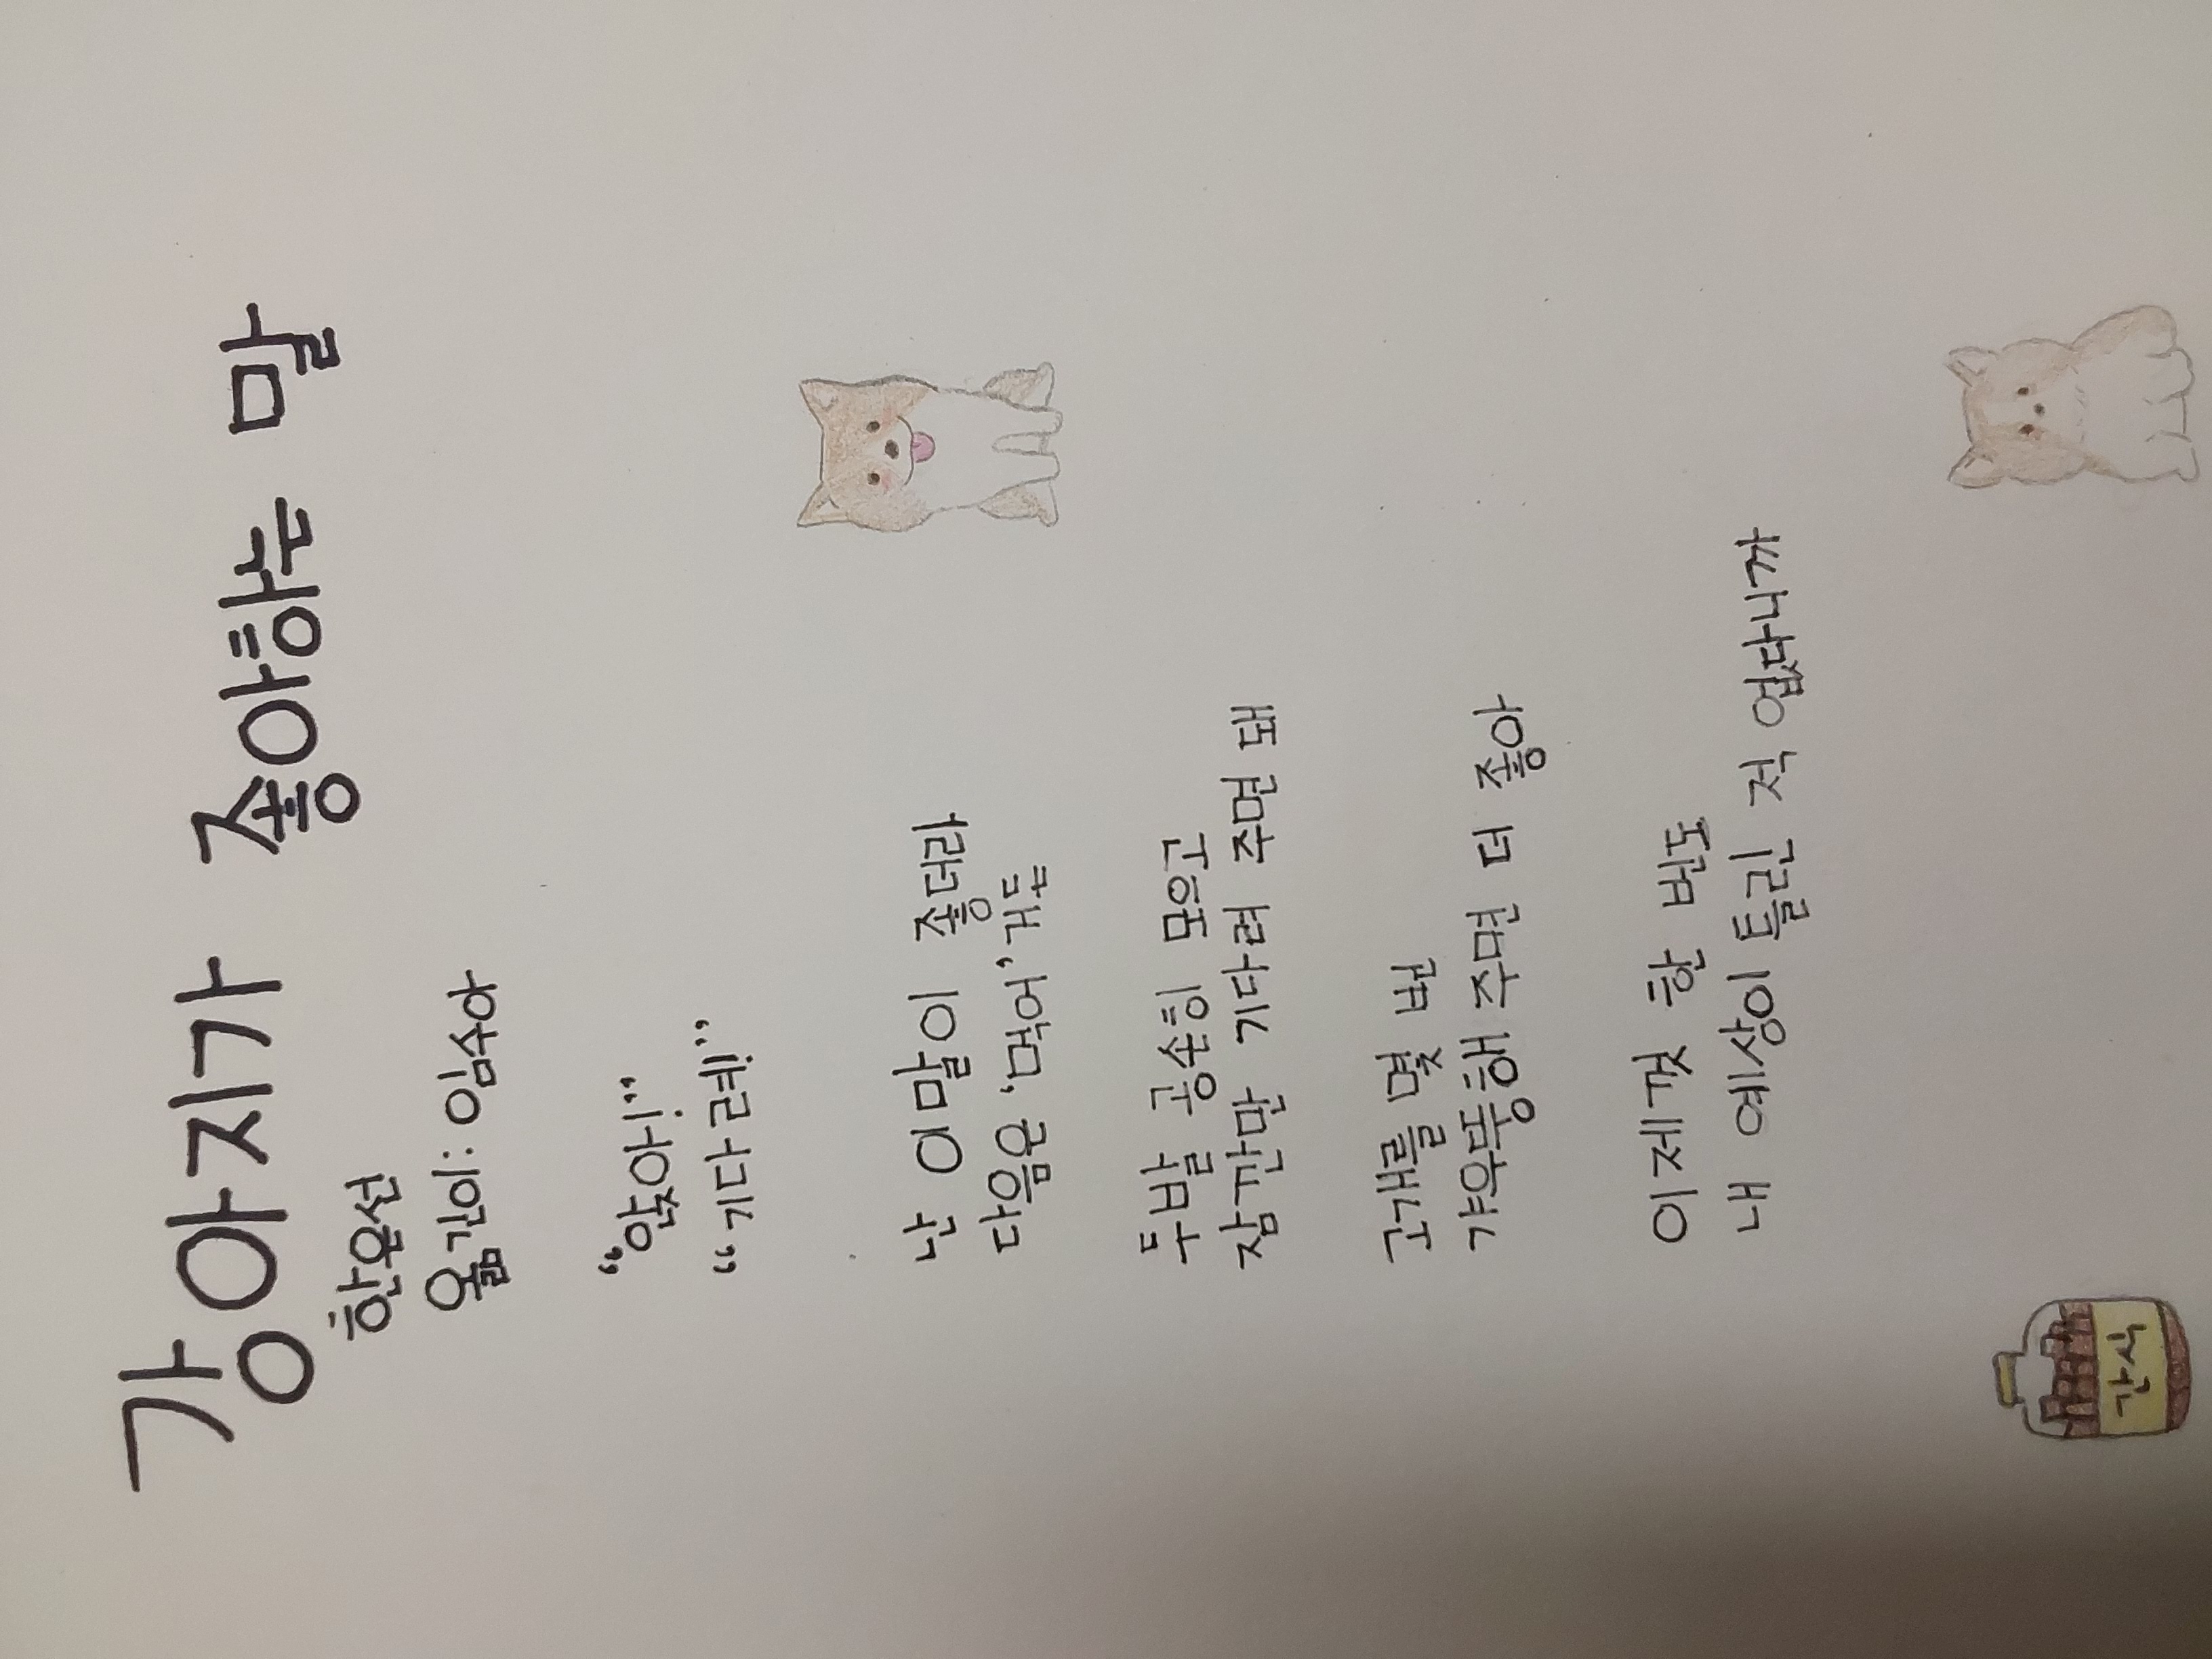 강아지가 좋아하는 말
한윤선
옮긴이: 임수아
“앉아!”
“기다려!”
난 이말이 좋더라
다음은 ‘먹어’거든
두발 공손히 모으고
잠깐만 기다려 주면 돼
고개를 몇 번
갸우뚱해 주면 더 좋아
이제껏 한 번도
내 예상이 틀린 적 없다니까
간식